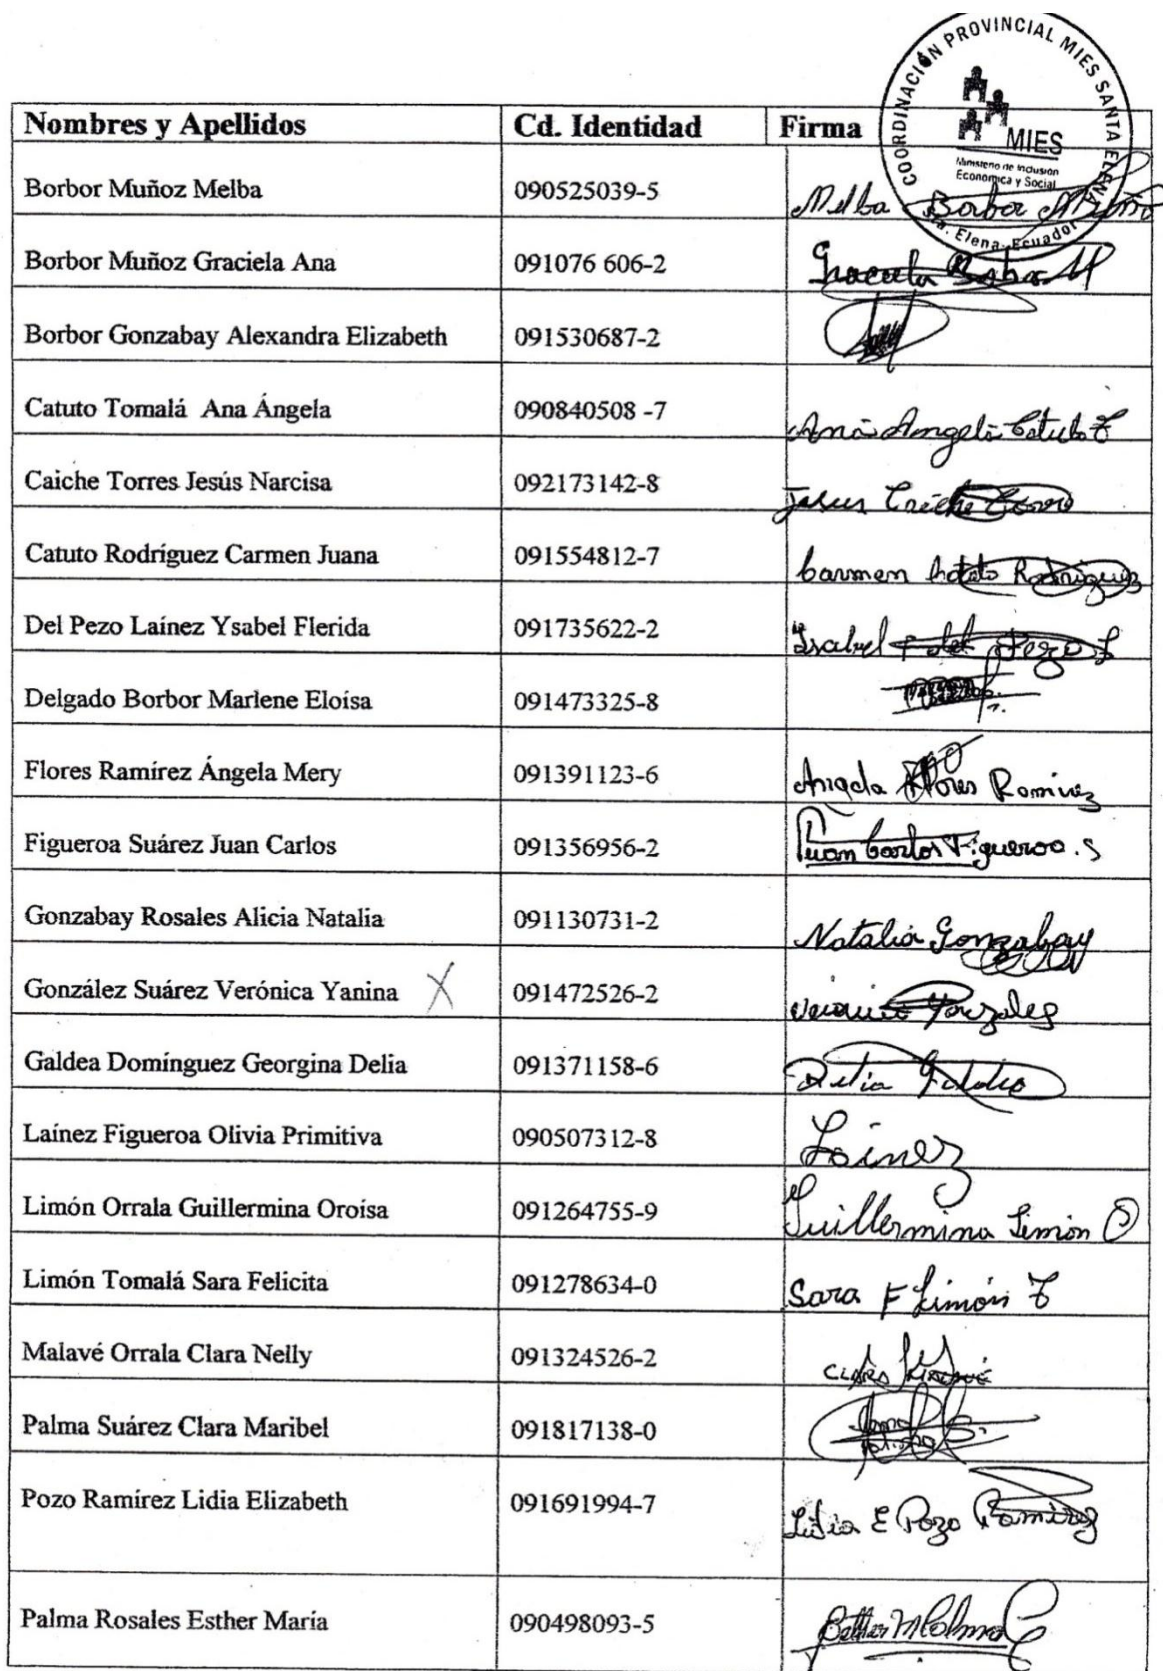 COORDINACIÓN PROVINCIAL MIES SANTA ELENA
MIES
Ministerio de Inclusión
Economica y Social
Sta. Elena - Ecuador
Nombres y Apellidos Cd. Identidad Firma
Borbor Muñoz Melba 090525039-5 Melba Borbor Muño
Borbor Muñoz Graciela Ana 091076 606-2 Graciela Borbor M
Borbor Gonzabay Alexandra Elizabeth 091530687-2
Catuto Tomalá Ana Ángela 090840508 -7 Ana Angela Catuto T
Caiche Torres Jesús Narcisa 092173142-8 Jesus Caiche Torre
Catuto Rodríguez Carmen Juana 091554812-7 Carmen Catuto Rodriguez
Del Pezo Laínez Ysabel Flerida 091735622-2 Isabel F del Pezo L
Delgado Borbor Marlene Eloísa 091473325-8
Flores Ramírez Ángela Mery 091391123-6 Angela Flores Ramirez
Figueroa Suárez Juan Carlos 091356956-2 Juan Carlos Figueroa .S
Gonzabay Rosales Alicia Natalia 091130731-2 Natalia Gonzabay
González Suárez Verónica Yanina X 091472526-2 Veronica Gonzales
Galdea Domínguez Georgina Delia 091371158-6 Delia Galdea
Laínez Figueroa Olivia Primitiva 090507312-8 Laínez
Limón Orrala Guillermina Oroísa 091264755-9 Guillermina Limón O
Limón Tomalá Sara Felicita 091278634-0 Sara F Limón T
Malavé Orrala Clara Nelly 091324526-2 CLARA Malavé
Palma Suárez Clara Maribel 091817138-0
Pozo Ramírez Lidia Elizabeth 091691994-7 Lidia E Pozo Ramirez
Palma Rosales Esther María 090498093-5 Esther M Palma